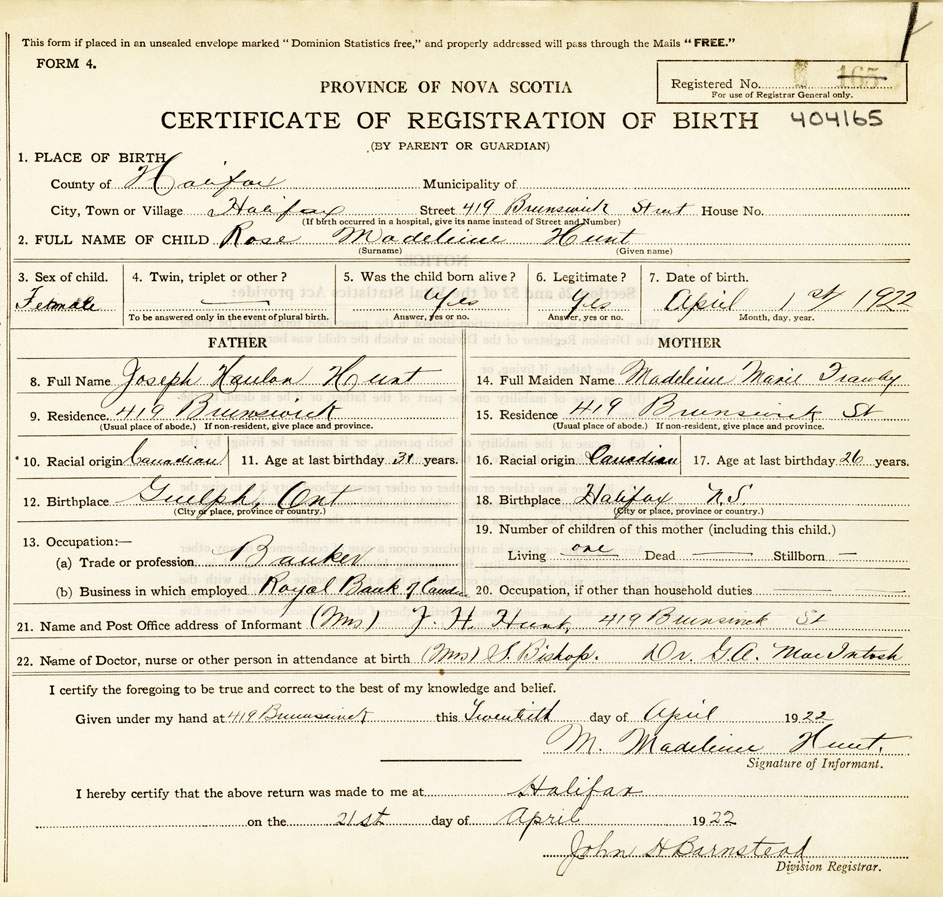 This form if placed in an unsealed envelope marked "Dominion Statistics free," and properly addressed will pass through the Mails "FREE."
FORM 4.
Registered No. 165
For use of Registrar General only.
PROVINCE OF NOVA SCOTIA
CERTIFICATE OF REGISTRATION OF BIRTH 404165
(BY PARENT OR GUARDIAN)
1. PLACE OF BIRTH
County of Halifax Municipality of
City, Town or Village Halifax Street 419 Brunswick Street House No.
(If birth occurred in a hospital, give its name instead of Street and Number)
2. FULL NAME OF CHILD Rose Madeleine Hunt
(Surname) (Given name)
3. Sex of child. 4. Twin, triplet or other? 5. Was the child born alive? 6. Legitimate? 7. Date of birth.
Female — Yes Yes April 1st 1922
To be answered only in the event of plural birth. Answer, yes or no. Answer, yes or no. Month, day, year.
FATHER MOTHER
8. Full Name Joseph Hanlon Hunt 14. Full Maiden Name Madeleine Marie
9. Residence. 419 Brunswick 15. Residence 419 Brunswick St
(Usual place of abode.) If non-resident, give place and province. (Usual place of abode.) If non-resident, give place and province.
*10. Racial origin Canadian 11. Age at last birthday 31 years. 16. Racial origin Canadian 17. Age at last birthday 26 years.
12. Birthplace Guelph, Ont 18. Birthplace Halifax N.S.
(City or place, province or country.) (City or place, province or country.)
13. Occupation:— 19. Number of children of this mother (including this child.)
(a) Trade or profession Banker Living one Dead — Stillborn —
(b) Business in which employed Royal Bank of Canada 20. Occupation, if other than household duties — —
21. Name and Post Office address of Informant (Mrs) J. H. Hunt, 419 Brunswick St
22. Name of Doctor, nurse or other person in attendance at birth (Mrs) S. Bishop. Dr. G.A. MacIntosh
I certify the foregoing to be true and correct to the best of my knowledge and belief.
Given under my hand at 419 Brunswick this Twentieth day of April 1922
M. Madeleine Hunt.
Signature of Informant.
I hereby certify that the above return was made to me at Halifax
on the 21st day of April 1922
John H Barnstead
Division Registrar.